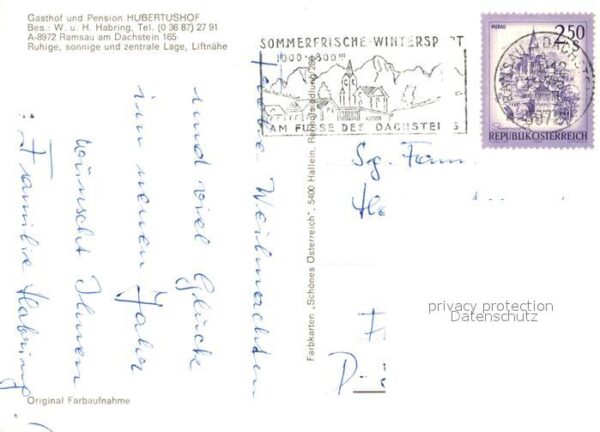 Gasthof und Pension HUBERTUSHOF
Bes.: W. u. H. Habring, Tel. (0 36 87) 27 91
A-8972 Ramsau am Dachstein 165
Ruhige, sonnige und zentrale Lage, Liftnähe
SOMMERFRISCHE-WINTERSP RT
AM FUSSE DES DACHSTEI S
MURAU
2.50
S
REPUBLIK ÖSTERREICH
RAMSAU A DACHSTEIN
8972
Frohe Weihnachten
und viel Glück
im neuen Jahr
wünscht Ihnen
Familie Habring
Farbkarten „Schönes Österreich", 5400 Hallein, Rehhofsiedlung
Sg. Fam.
D-
privacy protection
Datenschutz
Original Farbaufnahme